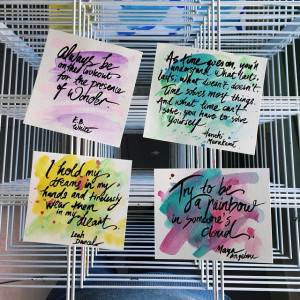 Always be
on the lookout
for the presence
of Wonder
E.B.
White
As time goes on, you'll
understand. What lasts,
lasts; what doesn't.
Time solves most things.
And what time can't
solve, you have to solve
yourself
Haruki
Murakami
I hold my
dreams in my
hands and
wear them
in my heart
Leah
Try to be
a rainbow
in someone's
cloud
Maya
Angelou